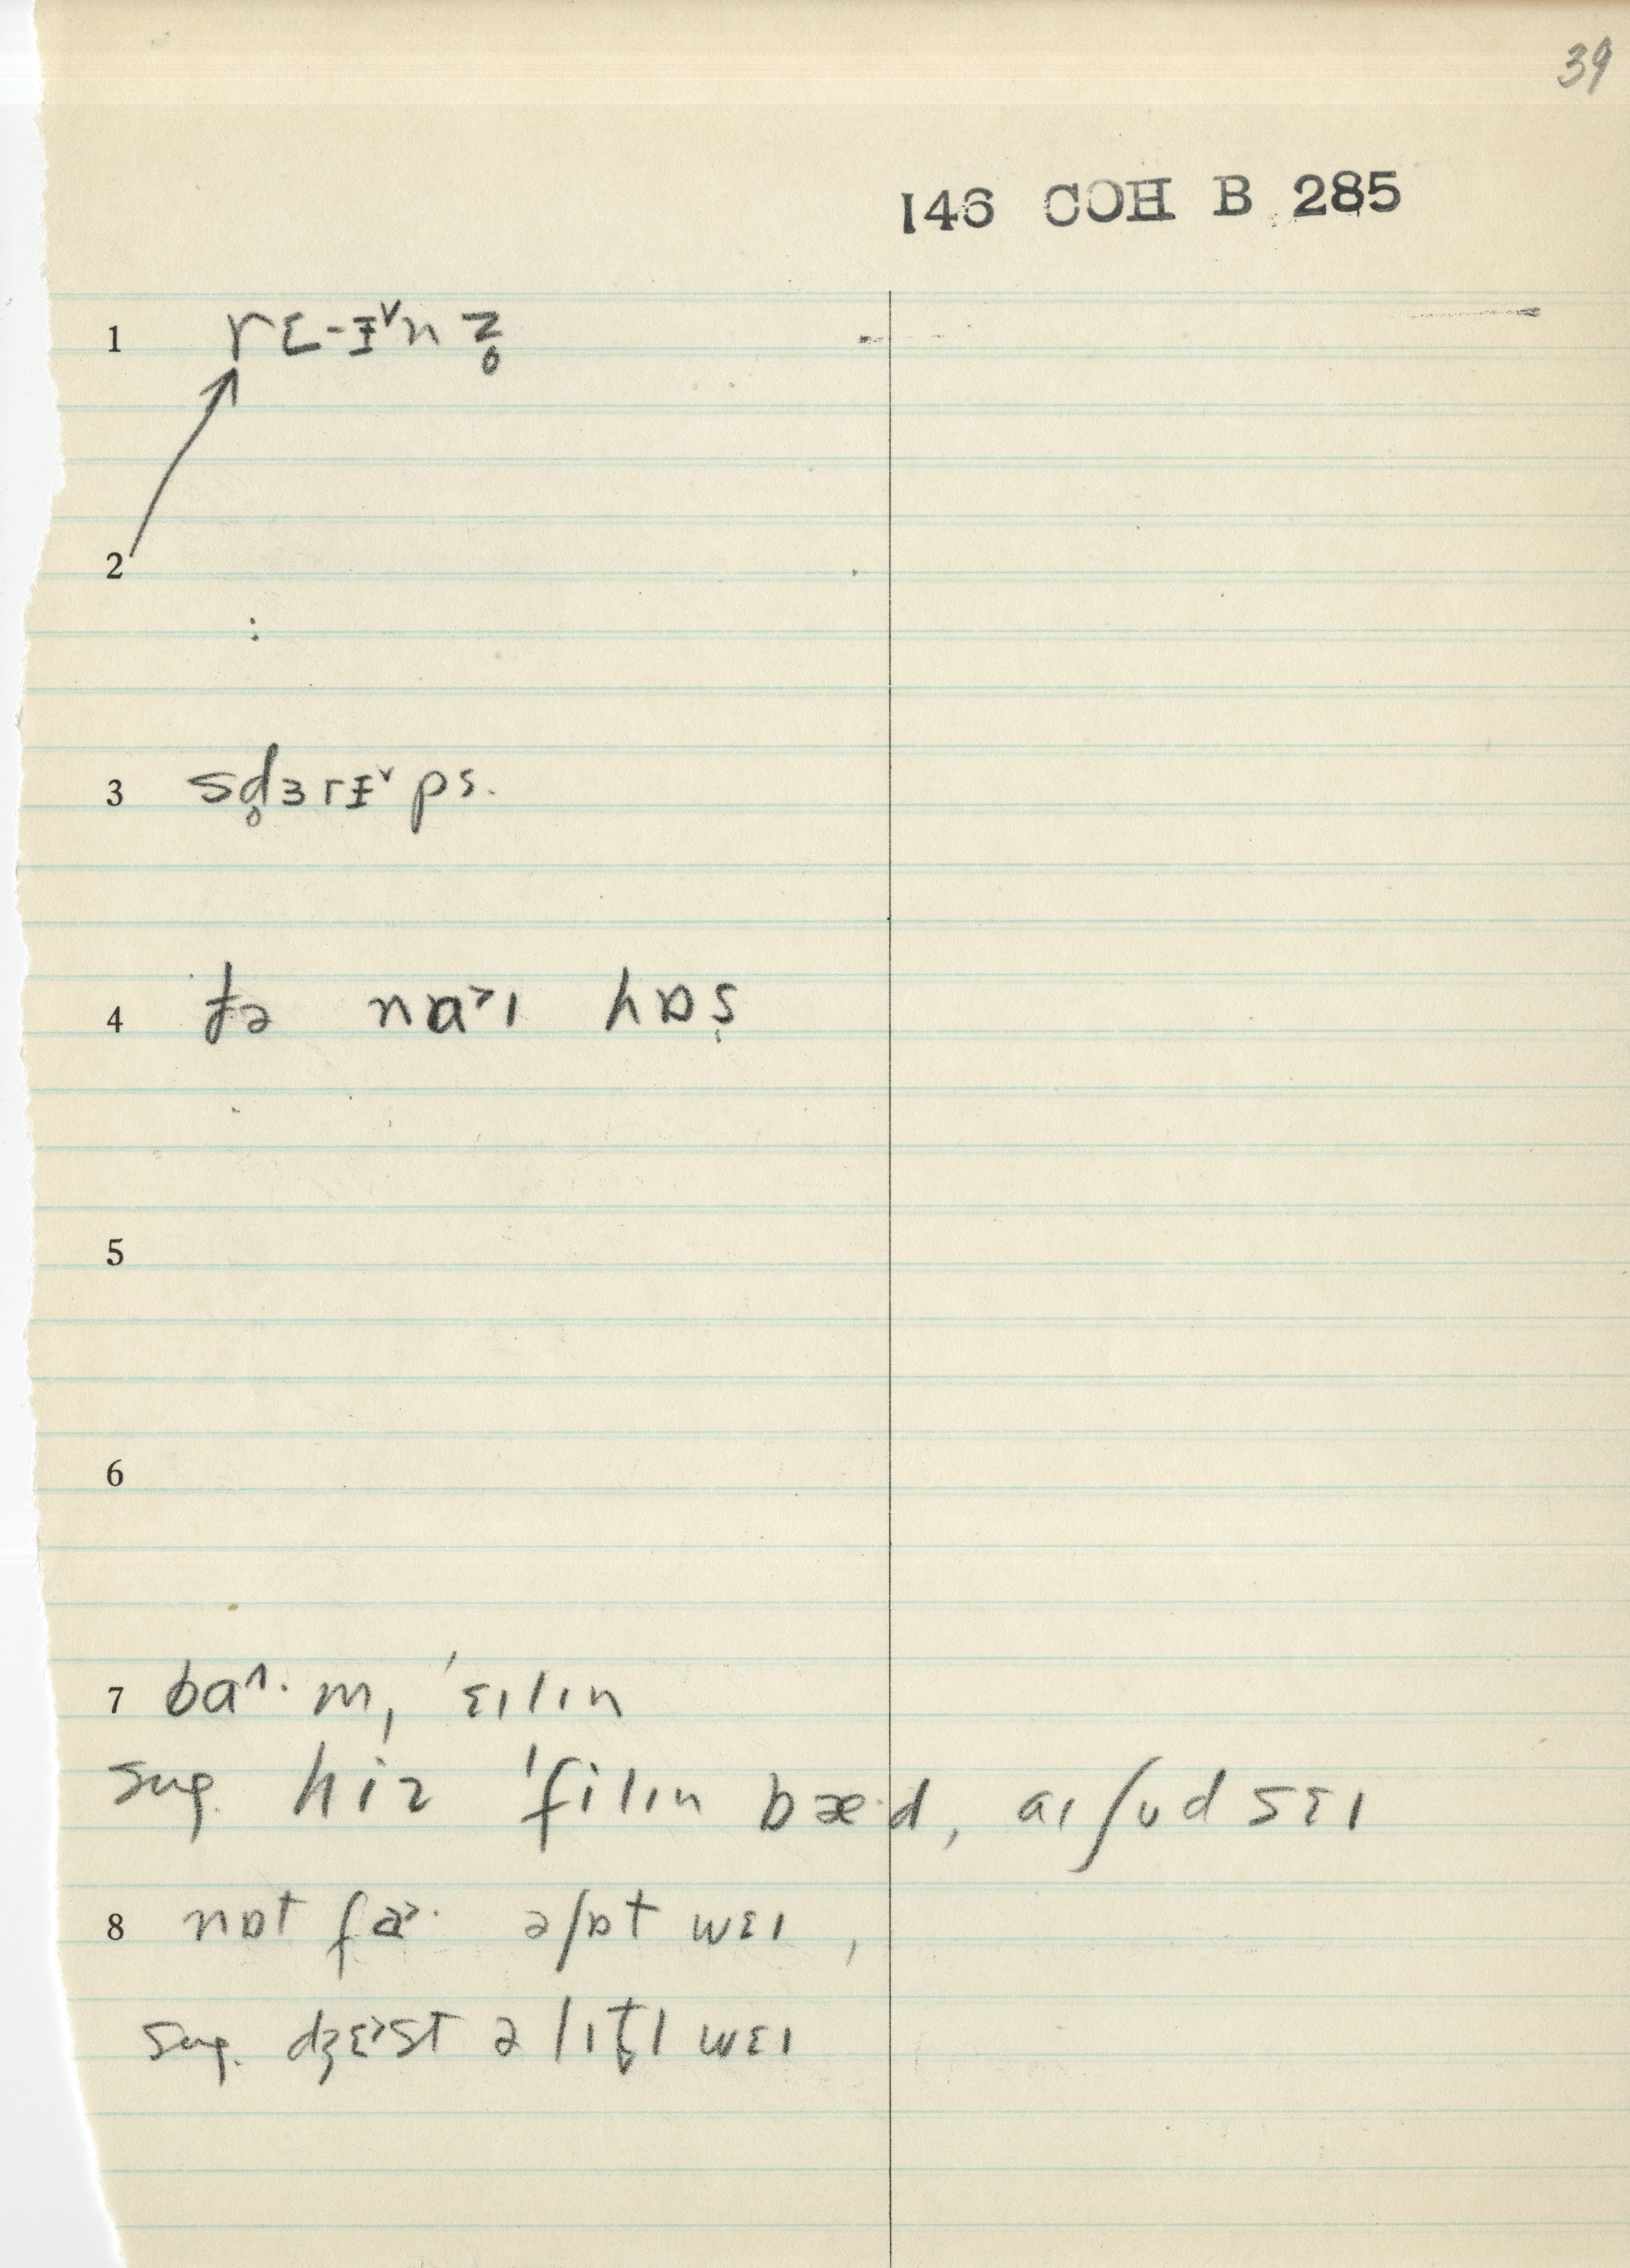 39
146 COH B 285
1 rɛ-ɪ̵ᵛnz̥
2
:
3 sd̥ɜrɪ̵ᵛps.
4 nɑ˃ɪ hɒs̬
5
6
7 ba^·m, 'ɛɪlɪn
sug. hiz 'filɪn bæ·d, aɪ ʃʊd sɛɪ
8 nɒt fa˃· ə ʃɒt wɛɪ,
sug. dʒɛ˃st ə lɪt̬l wɛɪ